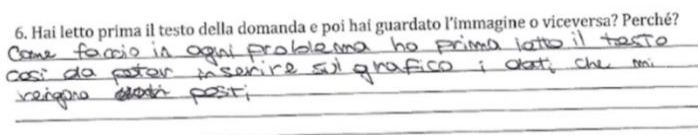 6. Hai letto prima il testo della domanda e poi hai guardato l'immagine o viceversa? Perché?
Come faccio in ogni problema ho prima letto il testo
così da poter inserire sul grafico i dati che mi
vengono posti